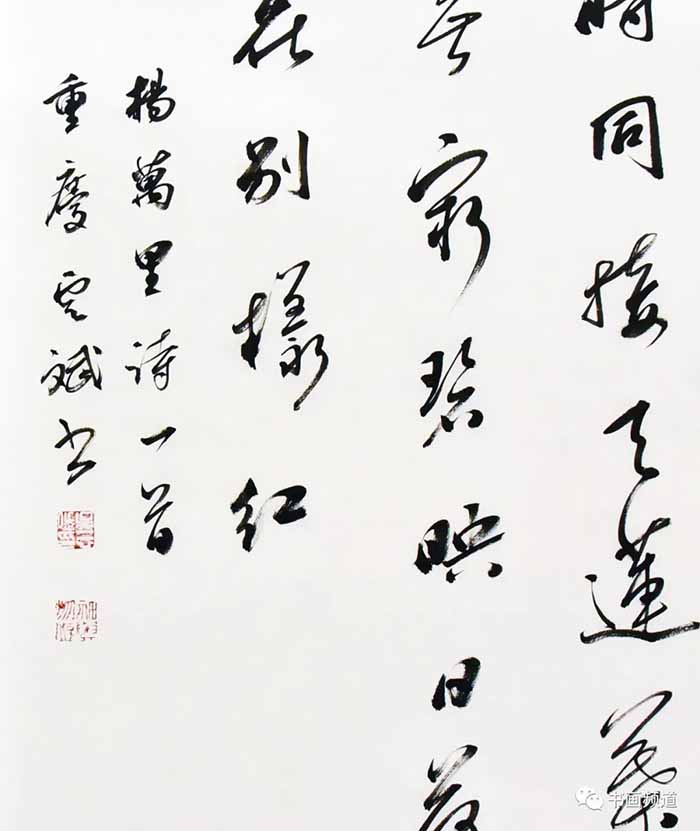 時同接天蓮葉
無窮碧映日荷
花別樣紅
楊萬里詩一首
重慶斌书
书画频道